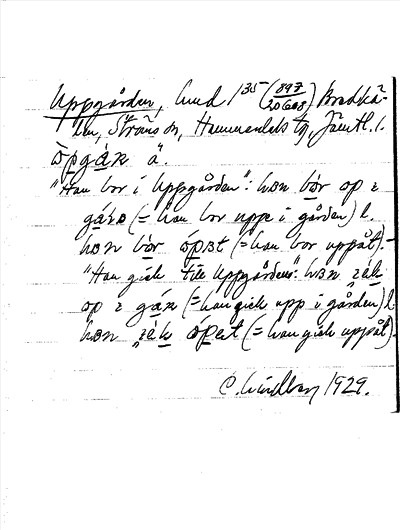 Uppgården, hmd 1³⁵ (897/20608) Bredkä-
len, Ströms sn, Hammerdals tg, Jämtl. l.
òpgáṇ ä.
"Han bor i Uppgården": hɷn bór op ɪ
gáṇɷ (= han bor uppe i gården) l.
hɷn bór ópɜt (= han bor uppåt). –
"Han gick till Uppgården": hɷn jék
op ɪ gáṇ (= han gick upp i gården) l.
hɷn jék ópɜt (= han gick uppåt).
C. Lindberg 1929.